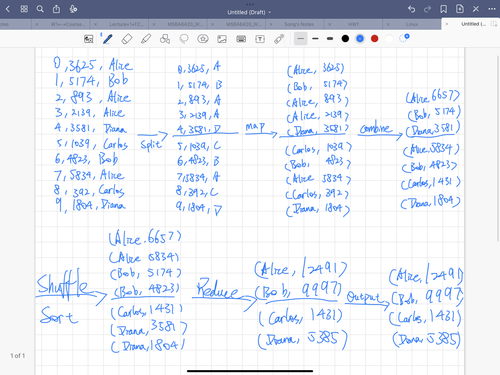 Untitled (Draft)
Song's Notes
Linux
Untitled (
0, 3625, Alice
1, 5174, Bob
2, 893, Alice
3, 2139, Alice
4, 3581, Diana
5, 1039, Carlos
6, 4823, Bob
7, 5834, Alice
8, 392, Carlos
9, 1804, Diana
split
0, 3625, A
1, 5174, B
2, 893, A
3, 2139, A
4, 3581, D
5, 1039, C
6, 4823, B
7, 5834, A
8, 392, C
9, 1804, D
map
(Alice, 3625)
(Bob, 5174)
(Alice, 893)
(Alice, 2139)
(Diana, 3581)
(Carlos, 1039)
(Bob, 4823)
(Alice 5834)
(Carlos, 392)
(Diana, 1804)
Combine
(Alice 6657)
(Bob, 5174)
(Diana, 3581)
(Alice, 5834)
(Bob, 4823)
(Carlos, 1431)
(Diana, 1804)
Shuffle
Sort
(Alice, 6657)
(Alice 5834)
(Bob, 5174)
(Bob, 4823)
(Carlos, 1431)
(Diana, 3581)
(Diana, 1804)
Reduce
(Alice, 12491)
(Bob, 9997)
(Carlos, 1431)
(Diana, 5385)
Output
(Alice, 12491)
(Bob, 9997)
(Carlos, 1431)
(Diana, 5385)
1 of 1